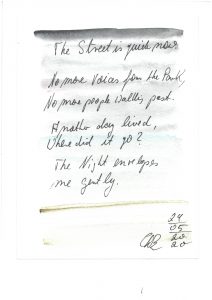 The Street is quiet, now.
No more Voices from the Park,
No more people walking past.
Another day lived,
Where did it go?
The Night envelopes
me gently.
24
05
20
20